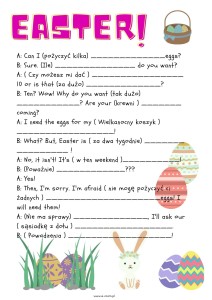 EASTER!
A: Can I (pożyczyć kilka) ____________ eggs?
B: Sure. (Ile) ____________ do you want?
A: ( Czy możesz mi dać ) ____________
10 or is that (za dużo) ____________ ?
B: Ten? Wow! Why do you want (tak dużo)
____________? Are your (krewni ) ____________
coming?
A: I need the eggs for my ( Wielkanocny koszyk )
____________!
B: What? But, Easter is ( za dwa tygodnie) ____________
____________ !
A: No, it isn't! It's ( w ten weekend ) ____________!
B: (Poważnie) ____________???
A: Yes!
B: Then, I'm sorry. I'm afraid ( nie mogę pożyczyć ci
żadnych ) ____________ eggs! I
will need them!
A: (Nie ma sprawy) ____________. I'll ask our
(sąsiadkę z dołu ) ____________!
B: ( Powodzenia ) ____________!